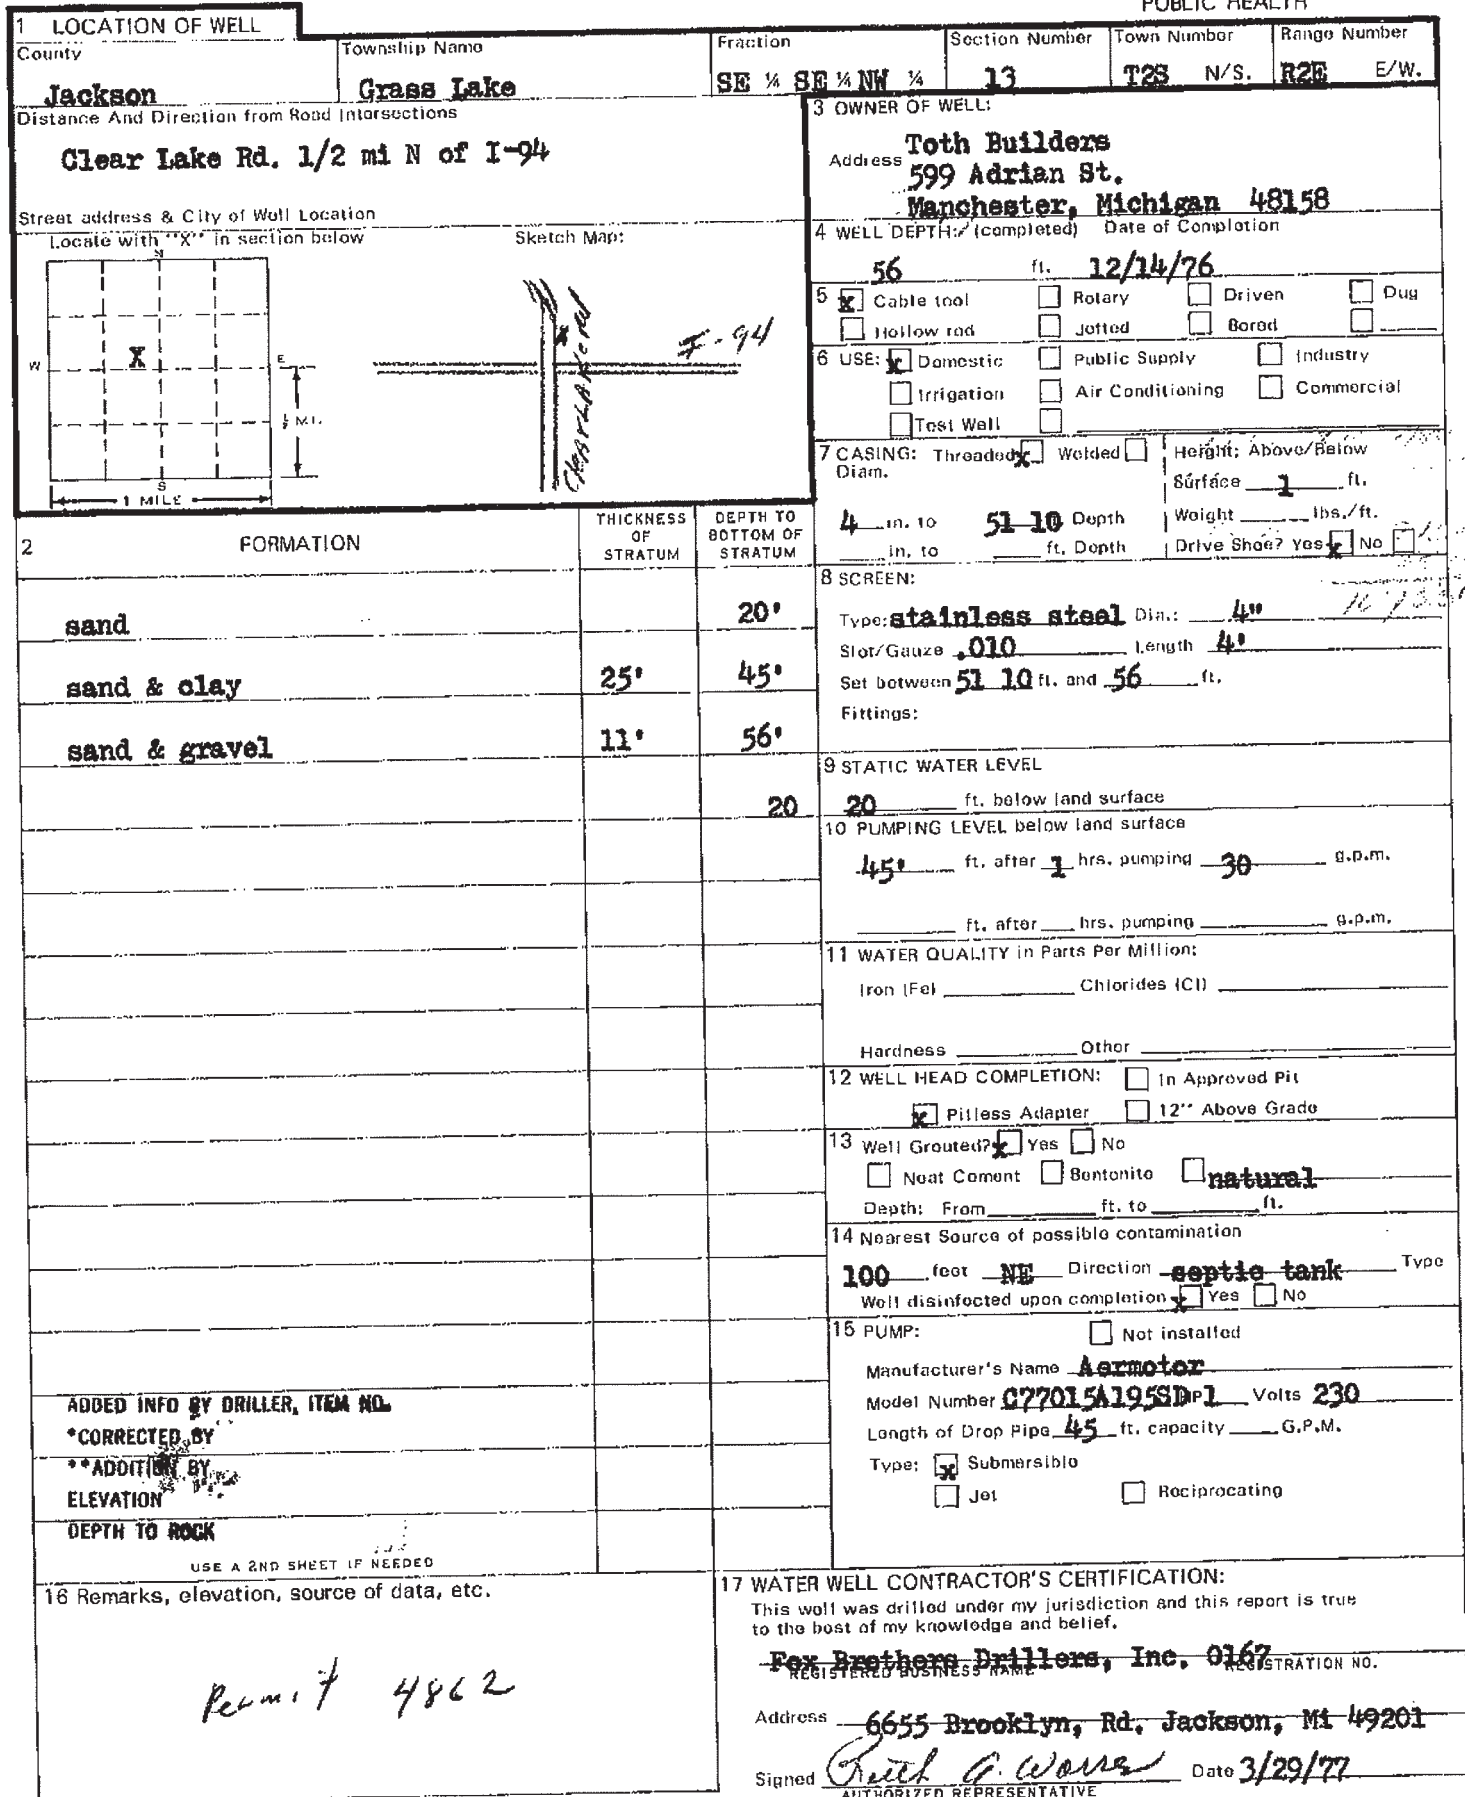 PUBLIC HEALTH
1 LOCATION OF WELL
County
Jackson
Township Name
Grass Lake
Fraction
SE ¼ SE ¼ NW ¼
Section Number
13
Town Number
T2S N/S.
Range Number
R2E E/W.
Distance And Direction from Road Intersections
Clear Lake Rd. 1/2 mi N of I-94
Street address & City of Well Location
Locate with "X" in section below
Sketch Map:
N
W
X
E
½ MI.
S
1 MILE
X
I-94
CLEAR LAKE Rd
3 OWNER OF WELL:
Toth Builders
Address
599 Adrian St.
Manchester, Michigan 48158
4 WELL DEPTH: (completed) Date of Completion
56 ft. 12/14/76
5 x Cable tool Rotary Driven Dug
Hollow rod Jetted Bored
6 USE: x Domestic Public Supply Industry
Irrigation Air Conditioning Commercial
Test Well
7 CASING: Threaded x Welded
Diam.
4 in. to 51 10 Depth
in. to ft. Depth
Height: Above/Below
Surface 1 ft.
Weight lbs./ft.
Drive Shoe? Yes x No
2 FORMATION
THICKNESS
OF
STRATUM
DEPTH TO
BOTTOM OF
STRATUM
sand 20'
sand & clay 25' 45'
sand & gravel 11' 56'
20
8 SCREEN:
Type: stainless steel Dia.: 4"
Slot/Gauze .010 Length 4'
Set between 51 10 ft. and 56 ft.
Fittings:
9 STATIC WATER LEVEL
20 ft. below land surface
10 PUMPING LEVEL below land surface
45' ft. after 1 hrs. pumping 30 g.p.m.
ft. after hrs. pumping g.p.m.
11 WATER QUALITY in Parts Per Million:
Iron (Fe) Chlorides (Cl)
Hardness Other
12 WELL HEAD COMPLETION: In Approved Pit
x Pitless Adapter 12" Above Grade
13 Well Grouted? x Yes No
Neat Cement Bentonite natural
Depth: From ft. to ft.
14 Nearest Source of possible contamination
100 feet NE Direction septic tank Type
Well disinfected upon completion x Yes No
15 PUMP: Not installed
Manufacturer's Name Aermotor
Model Number C77015A195SD HP 1 Volts 230
Length of Drop Pipe 45 ft. capacity G.P.M.
Type: x Submersible
Jet Reciprocating
ADDED INFO BY DRILLER, ITEM NO.
*CORRECTED BY
**ADDITION BY
ELEVATION
DEPTH TO ROCK
USE A 2ND SHEET IF NEEDED
16 Remarks, elevation, source of data, etc.
Permit 4862
17 WATER WELL CONTRACTOR'S CERTIFICATION:
This well was drilled under my jurisdiction and this report is true
to the best of my knowledge and belief.
Fox Brothers Drillers, Inc. 0167
REGISTERED BUSINESS NAME REGISTRATION NO.
Address 6655 Brooklyn, Rd. Jackson, Mi 49201
Signed Date 3/29/77
AUTHORIZED REPRESENTATIVE